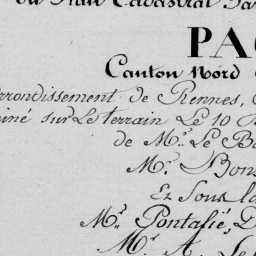 du Plan Cadastral
PA
Canton Nord
rrondissement de Rennes,
iné sur Le terrain Le 10
de Mr. Le B
Mr. Bons
Et Sous la
Mr. Pontallié, D
Mr. A. Le